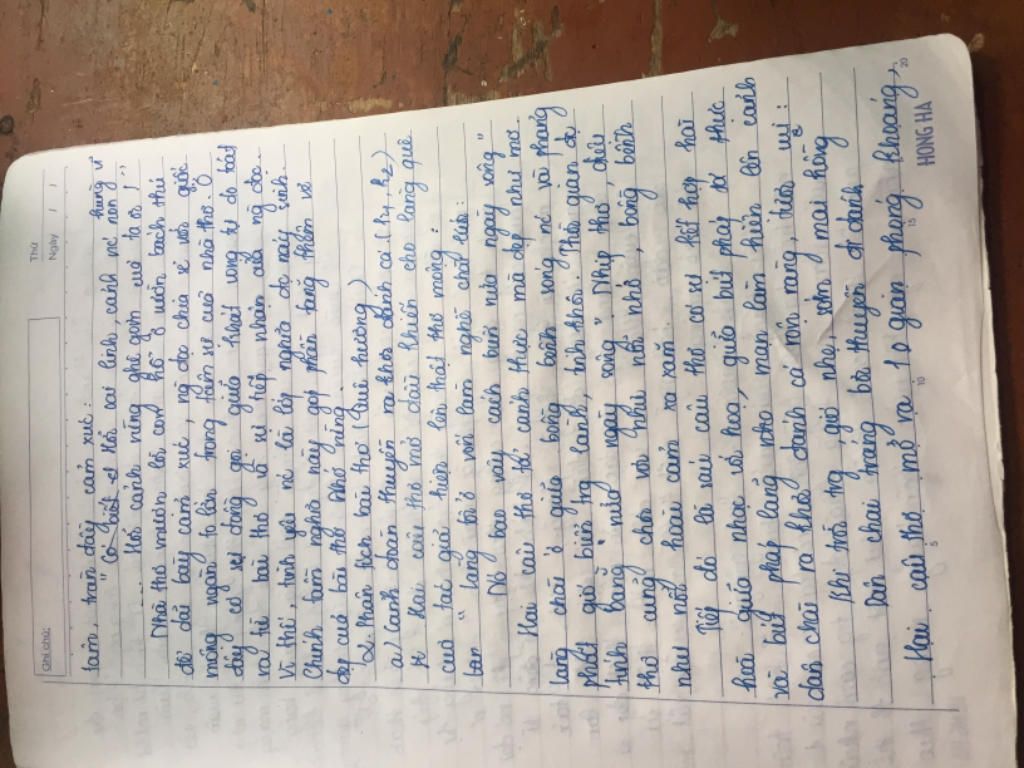 Thứ
Ngày / /
Ghi chú:
tâm, tràn đầy cảm xúc:
" Có biết - e thôi cai lính, canh nc non hùng vĩ
Hỏi canh rằng ghé gom cuê ta đó ! "
Nhà thơ mượn lời con hổ ở vườn bách thú
để dãi bày cảm xúc, ng do chia sẻ vs ng đọc
mộng ngàn to lớn trong tâm sự cuả nhà thơ. Ở
đây có sự đóng gó giữa khát vọng tự do toát
ra từ bài thơ và sự tiếp nhận của ng đọc.
Vì thế, tình yêu nc là lớp nghĩa đc nảy sinh.
Chính tầm nghĩa này góp phần tăng thêm vẻ
đẹp cuả bài thơ Nhớ rừng
2. Phân tích bài thơ (Quê hương)
a) Cảnh đoàn thuyền ra khơi đánh cá (k1, k2)
* Hai câu thơ mở đầu khiến cho làng quê
cuả tác giả hiện lên thật thơ mộng:
" Làng tôi ở vốn làm nghề chài lưới:
Nc bao vây cách biển nửa ngày sông"
Hai câu thơ tả cảnh thực mà đẹp như mơ.
Làng chài ở giữa bồng bềnh sóng nc và phảng
phất gió biển trg lành, tinh khôi. Thời gian đc
tính bằng "nửa ngày sông". Nhịp thơ, điệu
thơ cũng chơi vơi, nhẹ nổi nhỏ, bồng bềnh
như nỗi hoài cảm xa xăm.
Tiếp đó là sáu câu thơ có sự kết hợp hài
hoà giữa nhạc và hoạ, giữa bút pháp tả thực
và bút pháp lãng mạn, man làm hiện lên cảnh
dân chài ra khơi đánh cá rộn ràng, tiêu vui:
Khi trời trg gió nhẹ, sớm mai hồng
Dân chai tráng bơi thuyền đi đánh cá
Hai câu thơ mở ra 1 0 gian phóng khoáng,
5 10 15 20
HONG HA